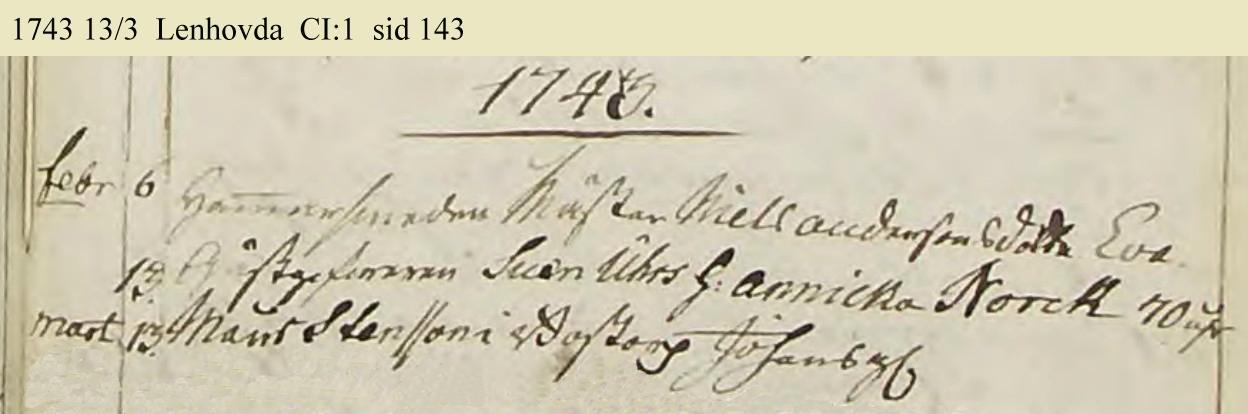 1743 13/3 Lenhovda CI:1 sid 143
1743.
febr 6 Hammersmeden Mäster Niels andersons dotter Eva.
13. Sven Uhrs H: annicka Norck 70 åhr
mart 13. Måns Stenssons i Johans